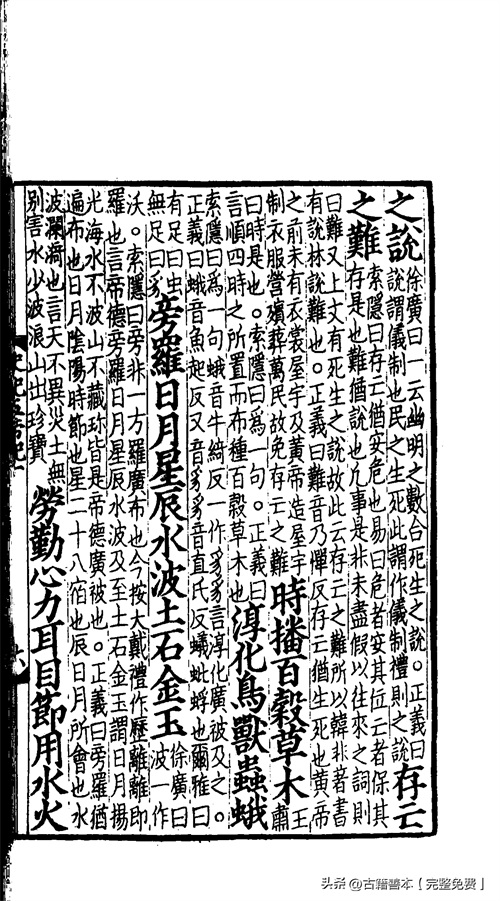 之說
徐廣曰一云幽明之數合死生之說。正義曰
說謂儀制也民之生死此謂作儀制禮則之說
存云
之難
索隱曰存云猶安危也易曰危者安其位云者保其
存是也難猶說也凢事是非未盡假以往來之詞則
曰難又上文有死生之說故此云存云之難所以韓非著書
有說林說難也。正義曰難音乃憚反存云猶生死也黃帝
之前未有衣裳屋宇及黃帝造屋宇
制衣服營殯葬萬民故免存云之難
時播百榖草木
王
肅
曰時是也。索隱曰爲一句。正義曰
言順四時之所置而布種百榖草木也
淳化鳥獸蟲蛾
索隱曰爲一句蛾音牛綺反一作豸豸言淳化廣被及之。
正義曰蛾音魚起反又音豸豸音直氏反蟻蚍蜉也爾雅曰
有足曰虫
無足曰豸
旁羅日月星辰水波土石金玉
徐廣曰
波一作
沃。索隱曰旁非一方羅廣布也今按大戴禮作歷離離即
羅也言帝德旁羅日月星辰水波及至土石金玉謂日月揚
光海水不波山不藏珍皆是帝德廣被也。正義曰旁羅猶
遍布也日月陰陽時節也星二十八宿也辰日月所會也水
波瀾漪也言天不異災土無
別害水少波浪山出珍寳
勞勤心力耳目節用水火
头条 @古籍善本【完整免费】